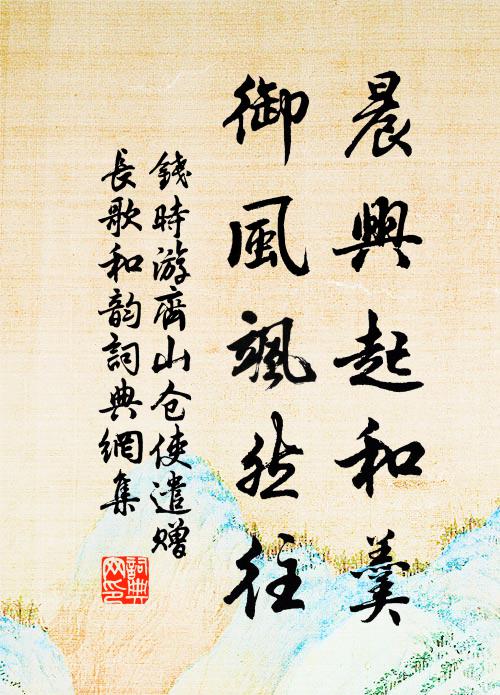 晨興起和羹
御風颯然往
錢時游齊山仓使遣赠
長歌和韵詞典網集
詞典
网印